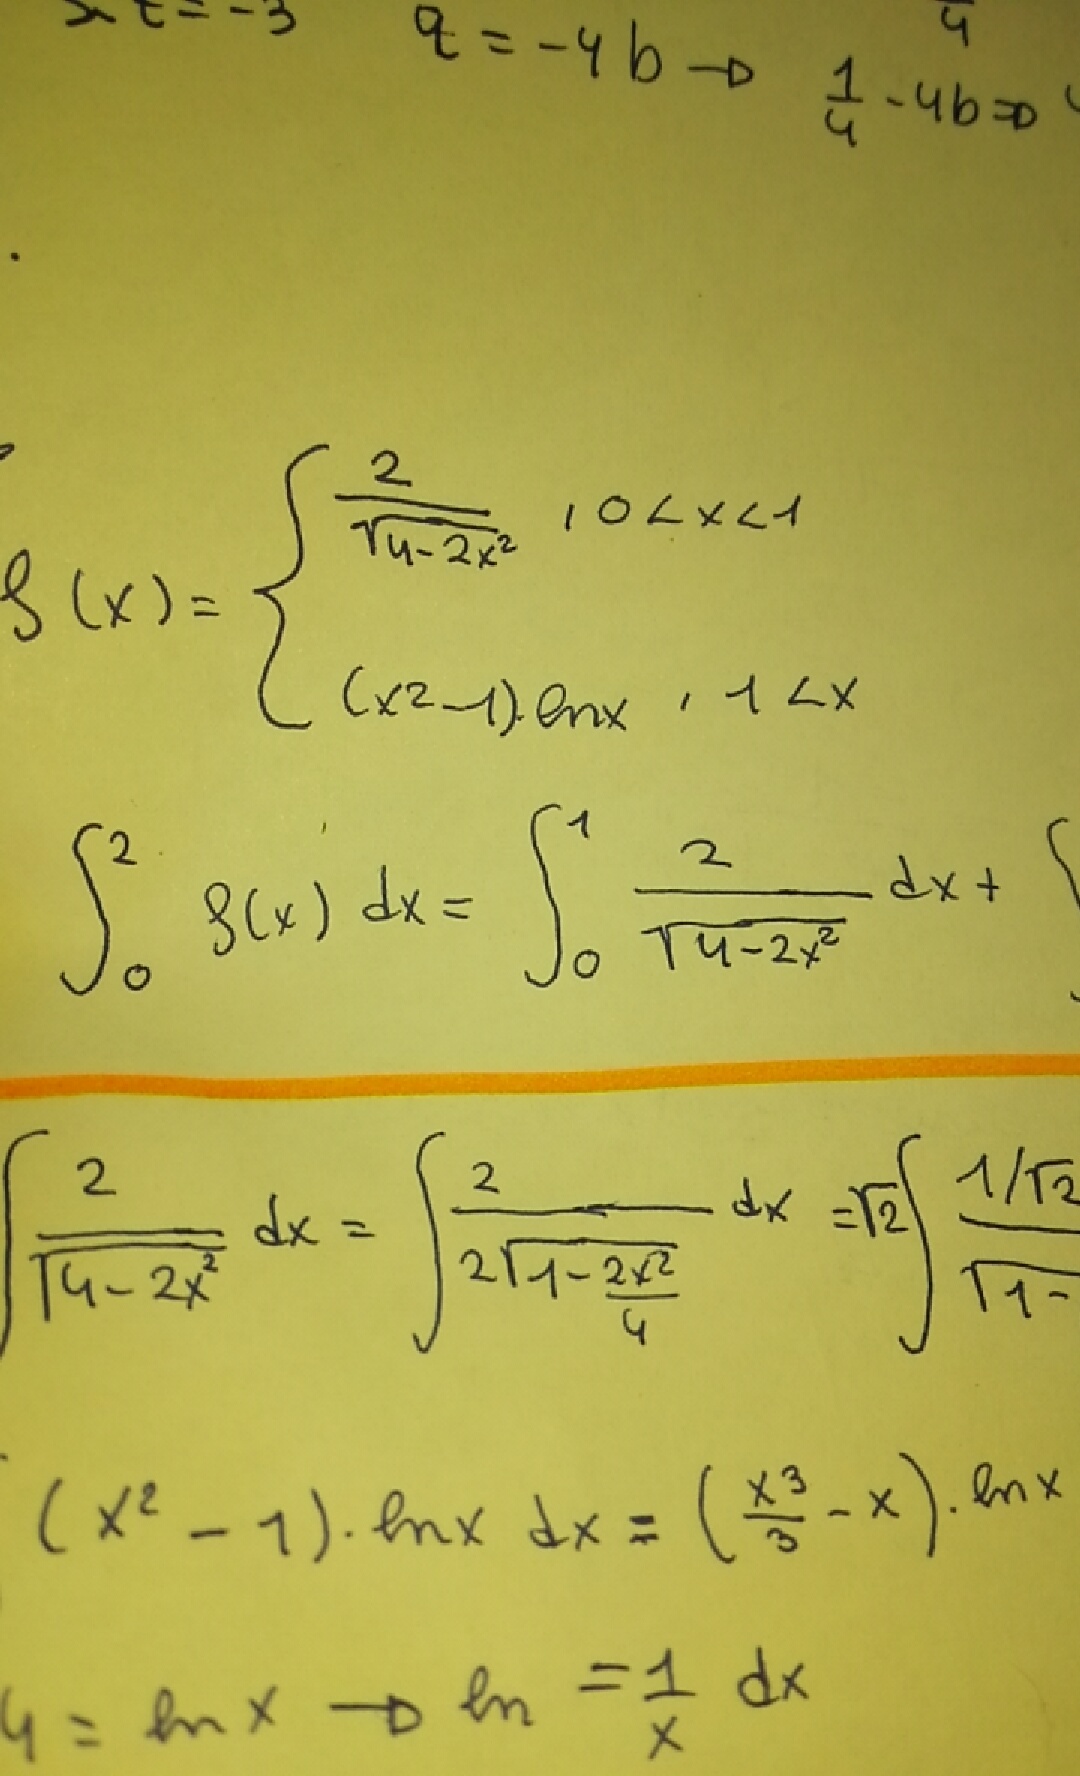 t = -3 q = -4b → 1/4 - 4b ⇒
f(x) = { 2/√(4-2x²) , 0<x<1
(x2-1).lnx , 1<x
∫₀² f(x) dx = ∫₀¹ 2/√(4-2x²) dx + ∫
∫ 2/√(4-2x²) dx = ∫ 2/(2√(1-2x²/4)) dx = √2 ∫ 1/√2 / √1-
(x² - 1). lnx dx = (x3/3 - x). lnx
u = ln x → ln = 1/x dx